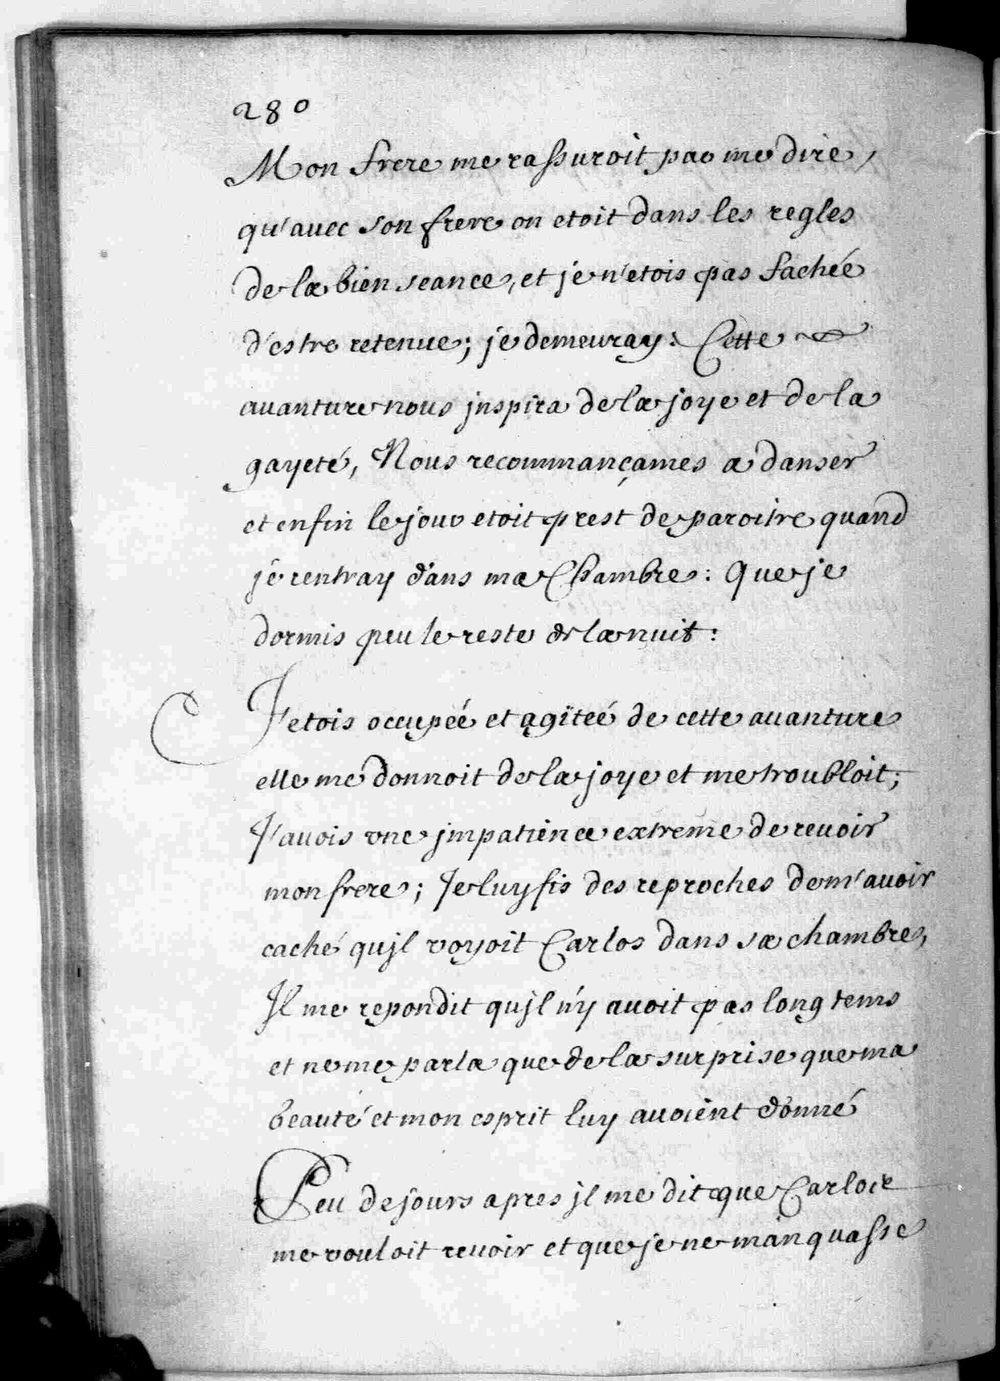 280
Mon frere me rassuroit pas me dire,
qu'avec son frere on etoit dans les regles
de la bien seance, et je n'etois pas fachée
d'estre retenue; je demeuray: Cette
auanture nous jnspira de la joye et de la
gayeté, Nous recommançames a danser
et enfin le jour etoit prest de paroitre quand
je rentray dans ma Chambre: Que je
dormis peu le reste de la nuit:
J'etois occupée et agiteé de cette auanture
elle me donnoit de la joye et me troubloit;
J'auois vne jmpatience extreme de reuoir
mon frere; Je luy fis des reproches de m'auoir
caché qujl voyoit Carlos dans sa chambre,
Jl me repondit qujl n'y auoit pas long tems
et ne me parla que de la surprise que ma
beauté et mon esprit luy auoient donné
Peu de jours apres jl me dit que Carlos
me vouloit reuoir et que je ne manquasse